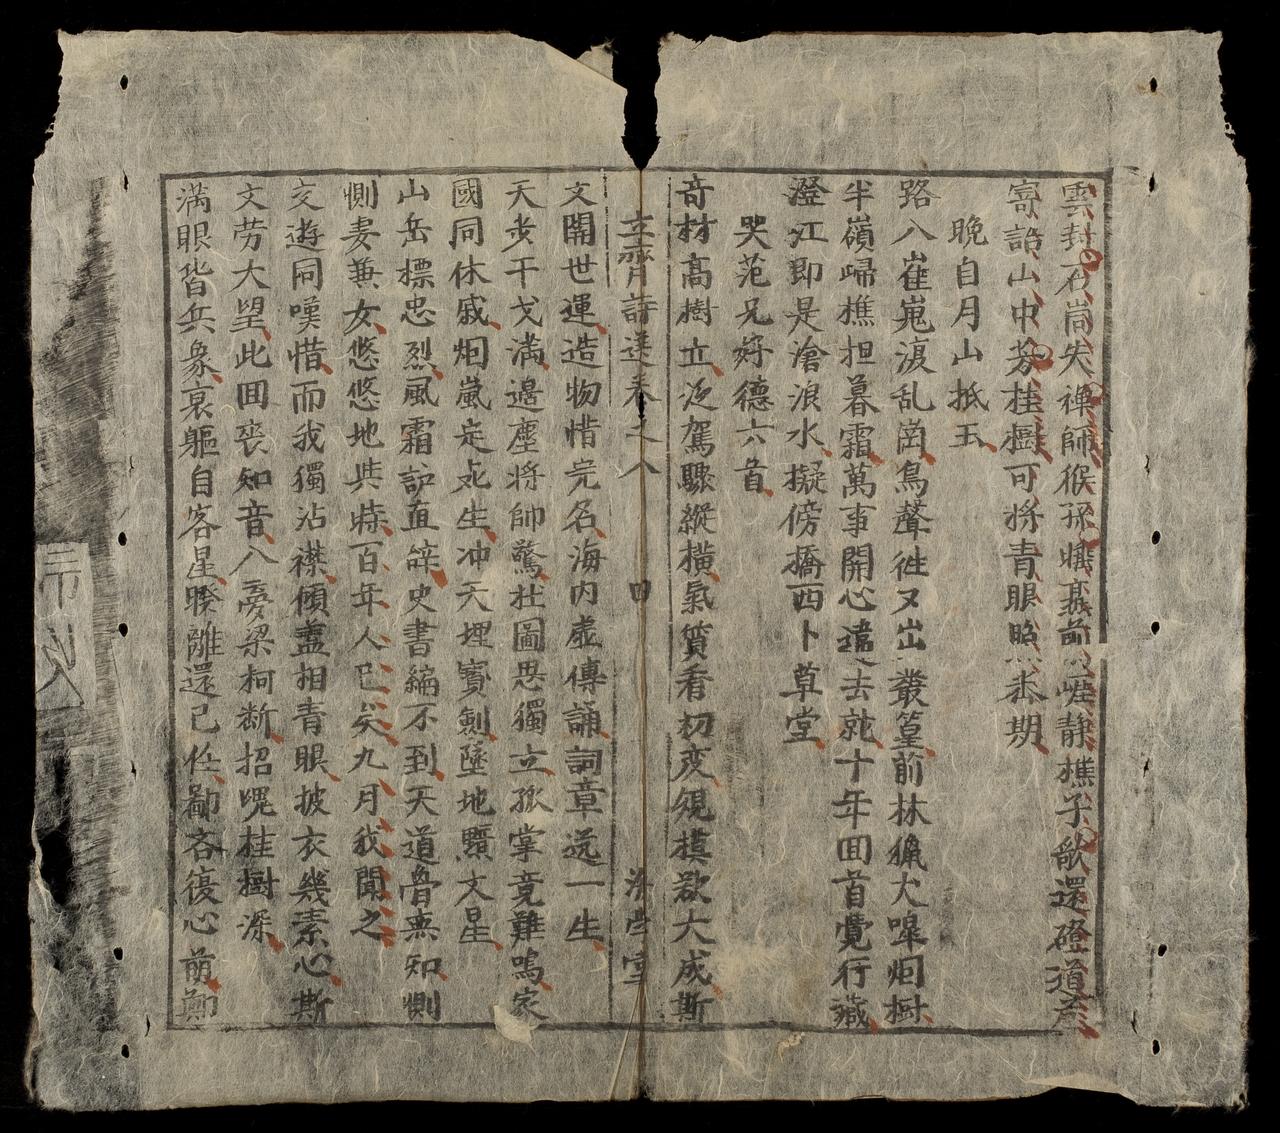 雲封石崗失禪師猴孫嬉聚前崖靜樵子歌還磴道危
寄語山中芳桂樹可將青眼照来期
晚自月山抵玉
路入崔嵬浪乱崗鳥聲徃又出叢篁前林獵犬嘷烟樹
半嶺歸樵担暮霜萬事開心違去就十年囬首覺行藏
澄江即是滄浪水擬傍橋西卜草堂
哭范兄好德六首
竒材高樹立泛駕驟縱横氣質看初变䂓模欲大成斯
立齋詩選卷之八 四
文開世運造物惜完名海内虛傳誦詞章远一生
天步干戈满邊塵將帥驚杜圖思獨立孤掌竟難鳴家
國同休戚烟嵐定死生冲天埋寳劍墜地黯文星
山岳標忠烈風霜訴直辞史書編不到天道得無知惻
惻妻兼女悠悠地共時百年人已矣九月我聞之
交遊同嘆惜而我獨沾襟傾盖相青眼披衣幾素心斯
文劳大望此囬丧知音入夢梁柯断招䰟桂樹深
满眼皆兵象哀軀自客星暌離還已任鄙吝復心萌鄭